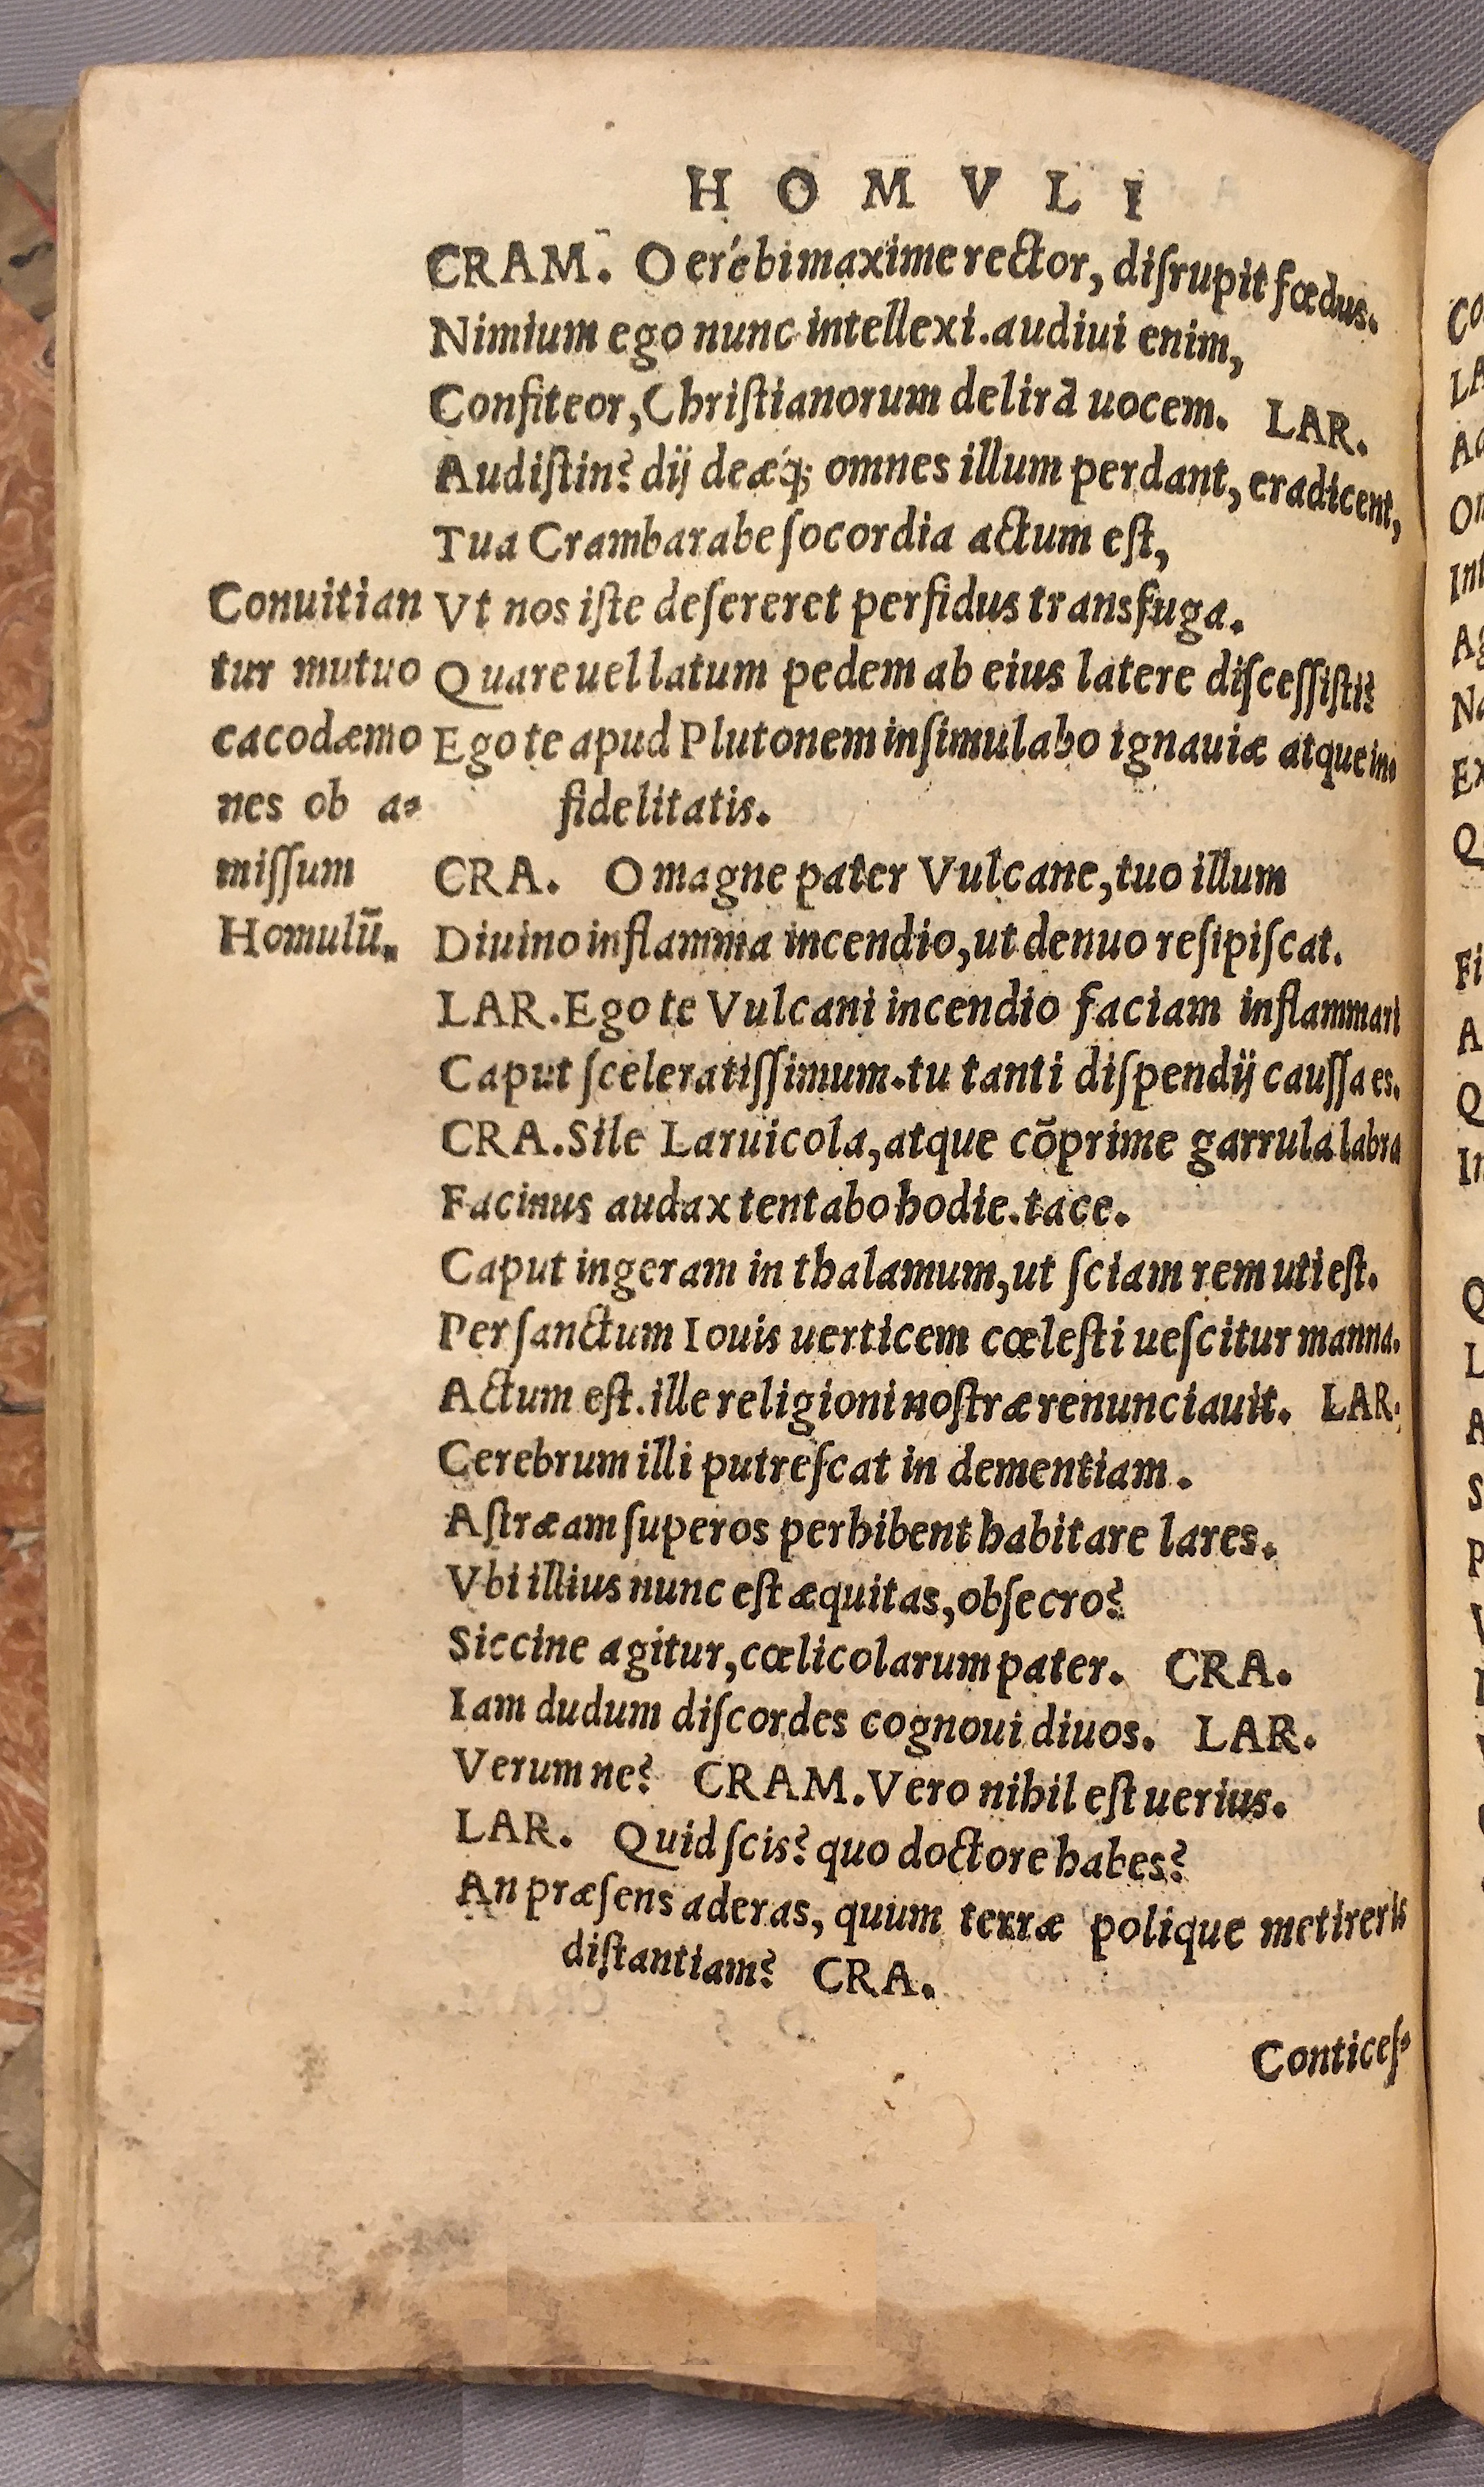 HOMVLI
CRAM. O erébi maxime rector, diſrupit fœdus.
Nimium ego nunc intellexi. audiui enim,
Confiteor, Chriſtianorum delirã uocem. LAR.
Audiſtin? dij deæq́; omnes illum perdant, eradicent,
Tua Crambarabe ſocordia actum eſt,
Vt nos iſte deſereret perfidus transfuga.
Quare uel latum pedem ab eius latere diſceſſiſti?
Ego te apud Plutonem inſimulabo ignauiæ atque in⸗
fidelitatis.
Conuitian
tur mutuo
cacodæmo
nes ob a⸗
miſſum
Homulũ.
CRA. O magne pater Vulcane, tuo illum
Diuino inflamma incendio, ut denuo reſipiſcat.
LAR. Ego te Vulcani incendio faciam inflammari
Caput ſceleratiſſimum. tu tanti diſpendij cauſſa es.
CRA. Sile Laruicola, atque cõprime garrula labra
Facinus audax tentabo hodie. tace.
Caput ingeram in thalamum, ut ſciam rem uti eſt.
Per ſanctum Iouis uerticem cœleſti ueſcitur manna.
Actum eſt. ille religioni noſtræ renunciauit. LAR.
Cerebrum illi putreſcat in dementiam.
Aſtræam ſuperos perhibent habitare lares.
Vbi illius nunc eſt æquitas, obſecro?
Siccine agitur, cœlicolarum pater. CRA.
Iam dudum diſcordes cognoui diuos. LAR.
Verum ne? CRAM. Vero nihil eſt uerius.
LAR. Quid ſcis? quo doctore habes?
An præſens aderas, quum terræ polique metireris
diſtantiam? CRA.
Conticeſ⸗